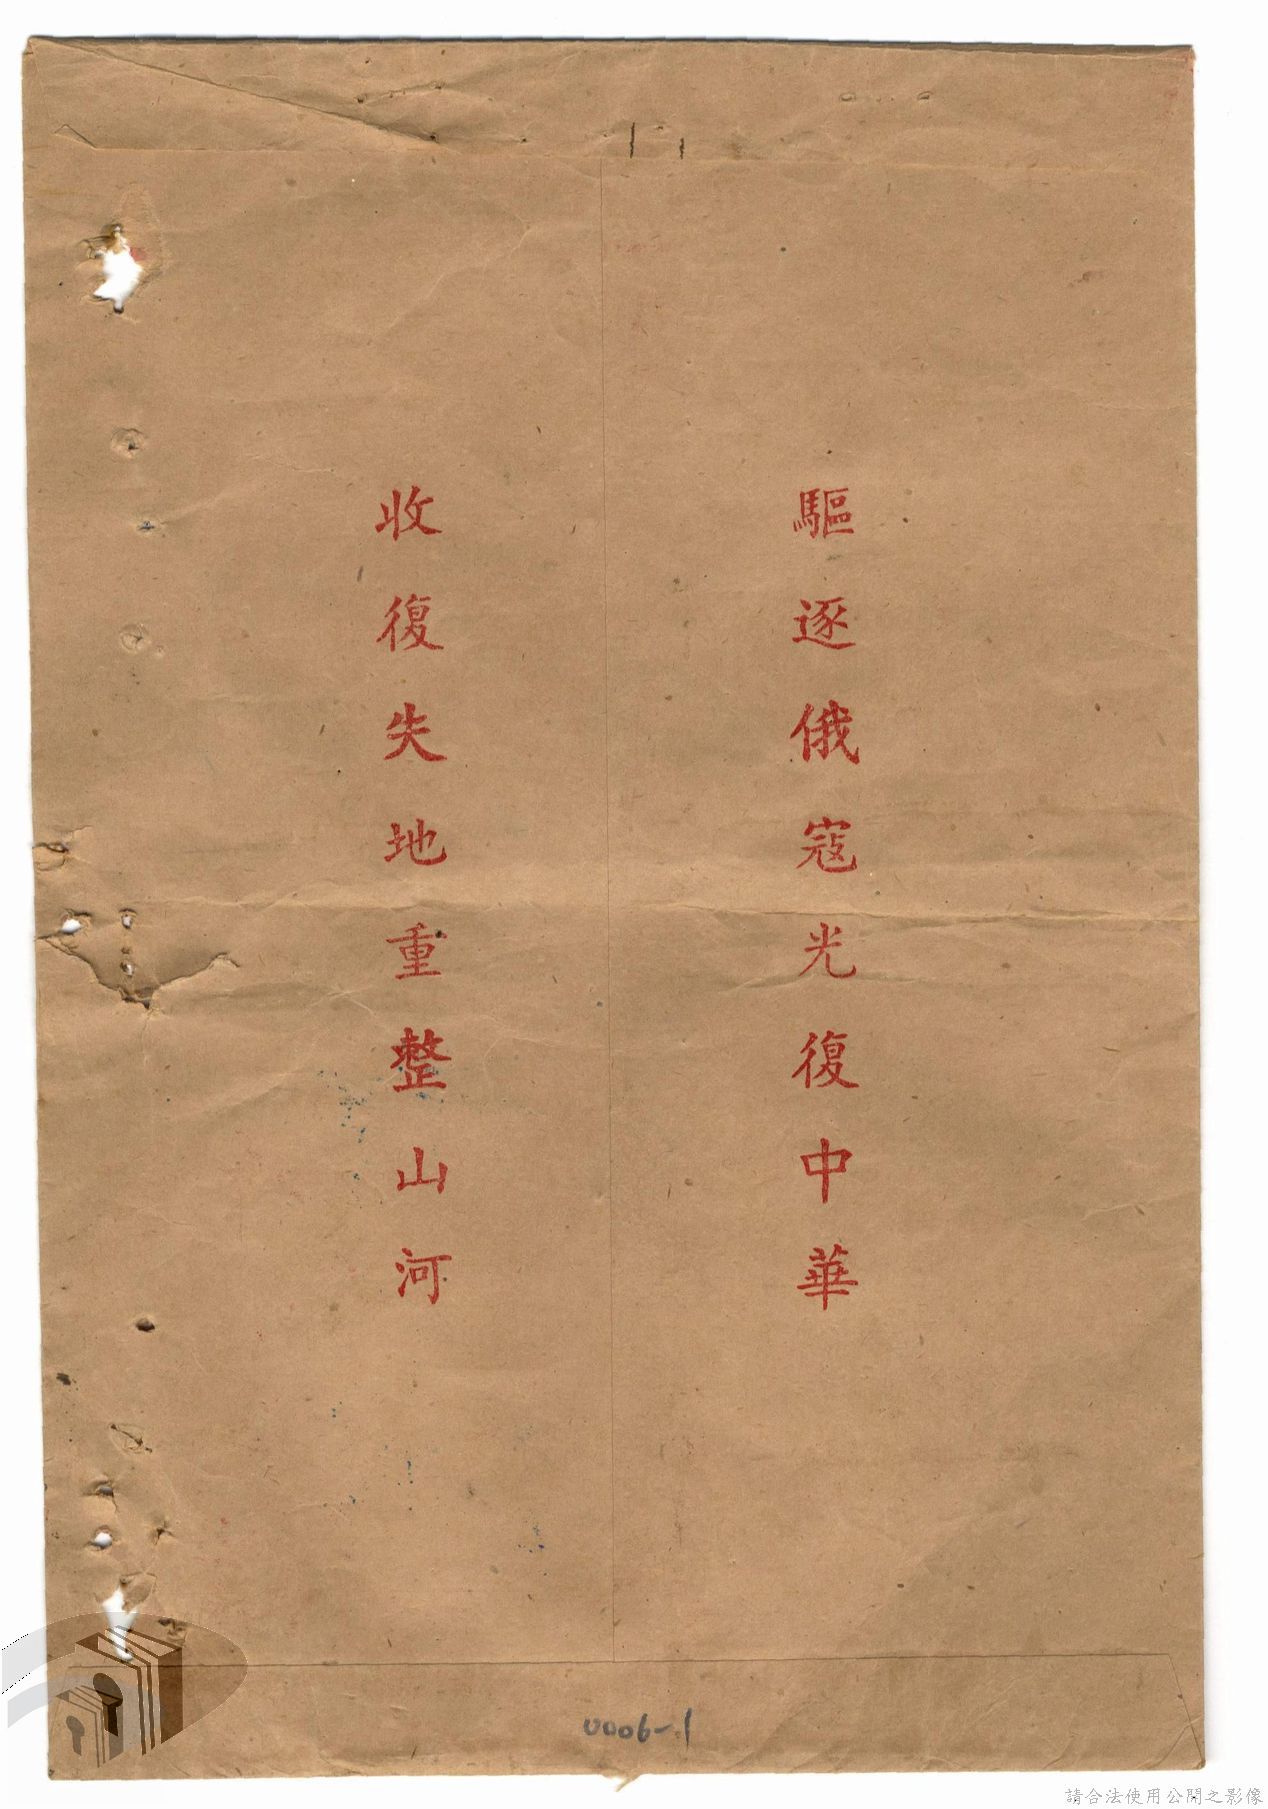 驅逐俄寇光復中華
收復失地重整山河
0006-1
請合法使用公開之影像